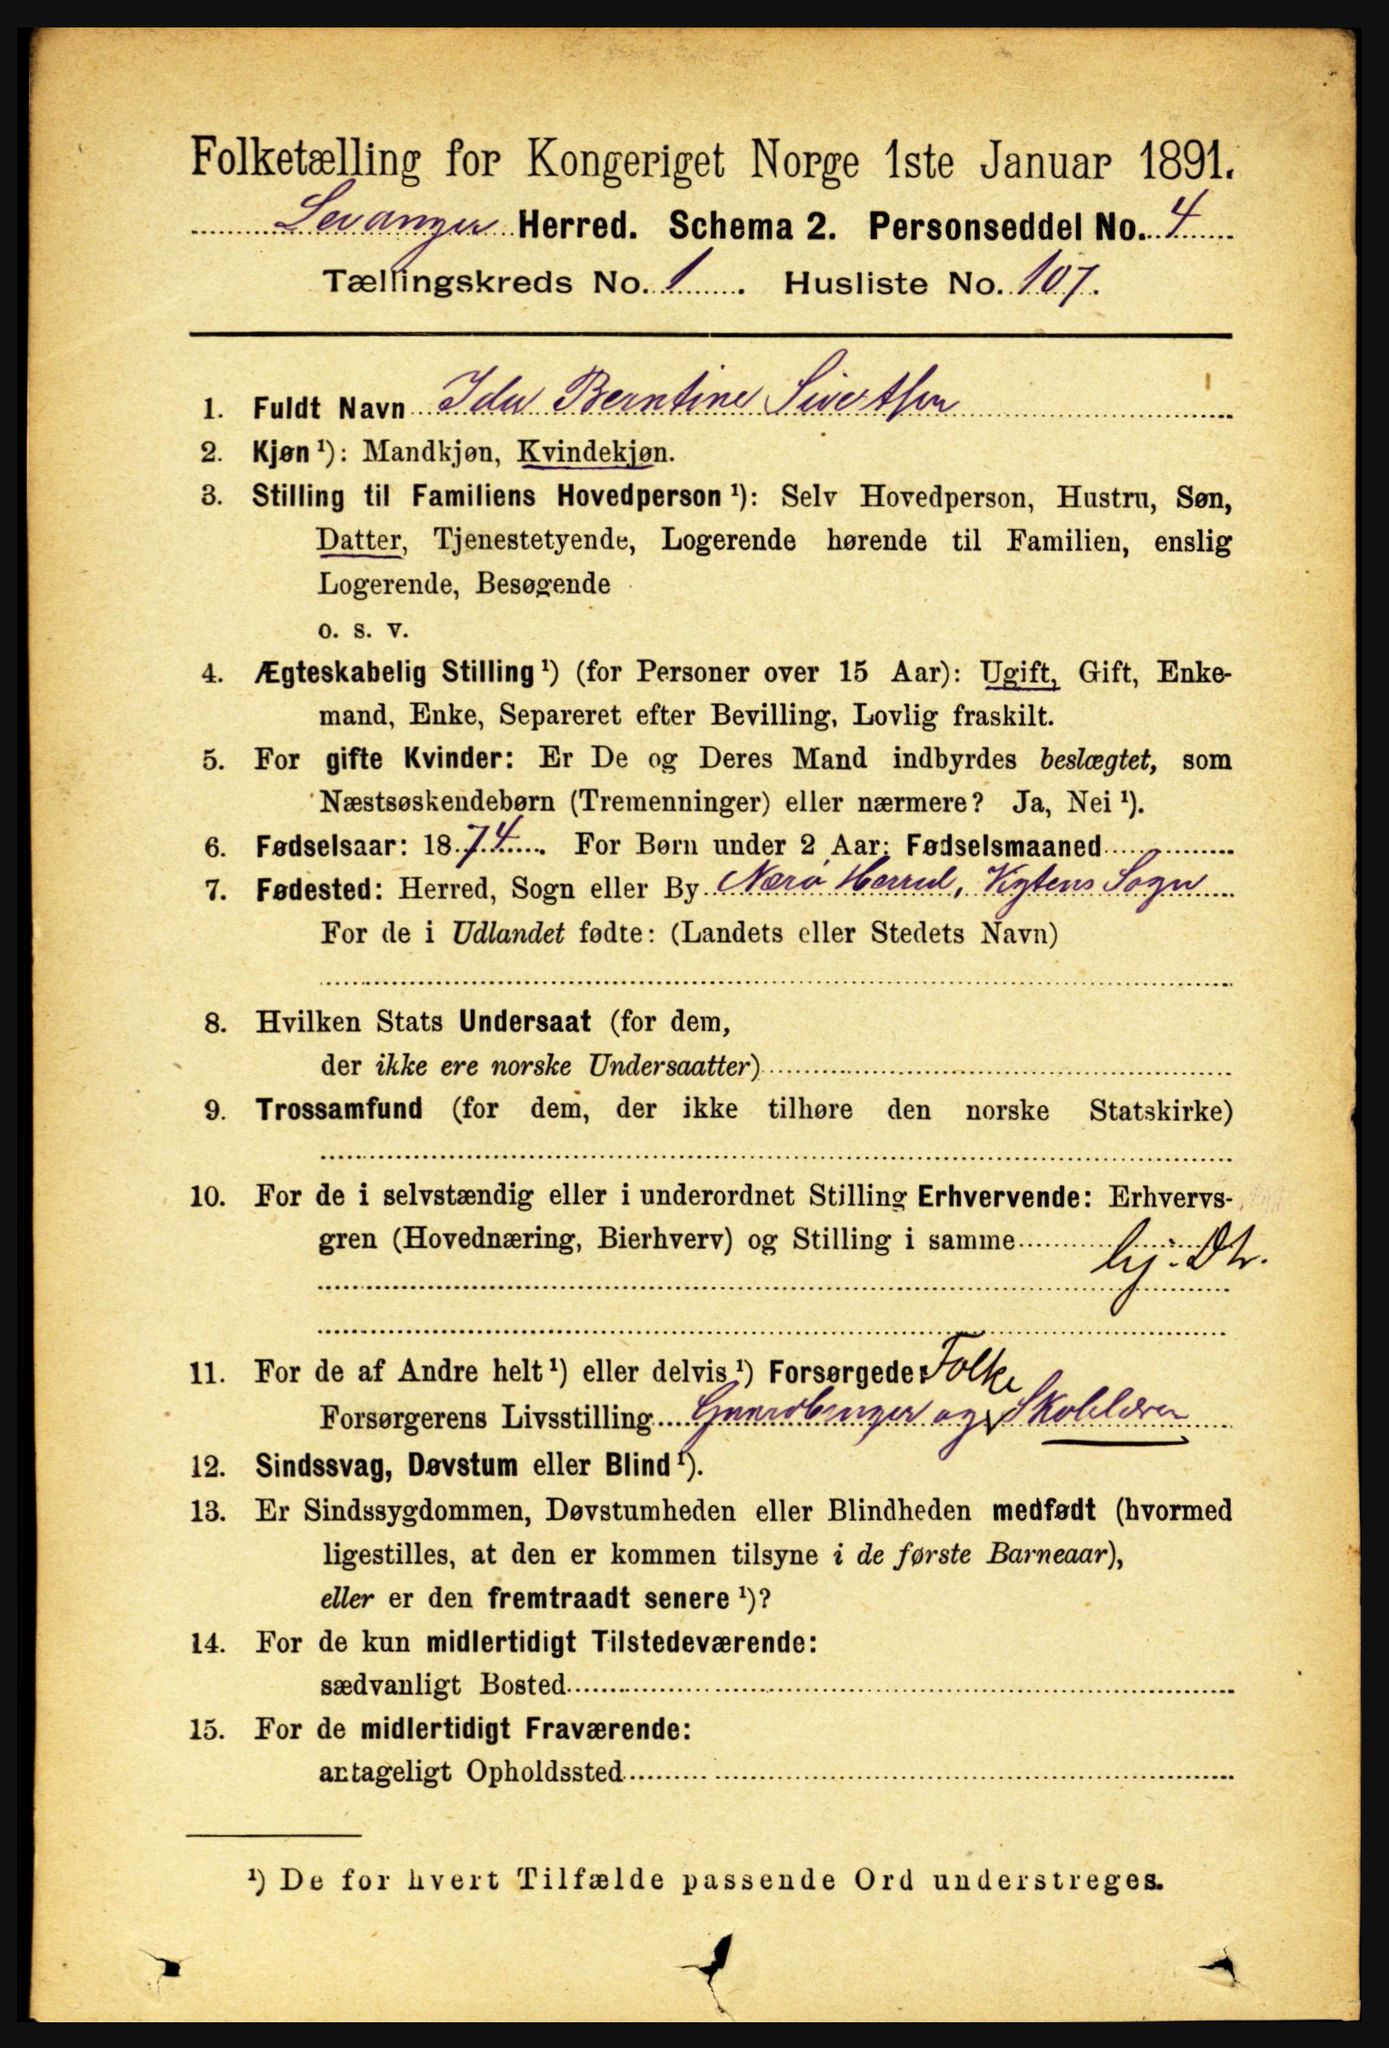 Folketælling for Kongeriget Norge 1ste Januar 1891.
Levanger Herred. Schema 2. Personseddel No. 4
Tællingskreds No. 1. Husliste No. 107.
1. Fuldt Navn Ida Berntine Sivertsen
2. Kjøn ¹): Mandkjøn, Kvindekjøn.
3. Stilling til Familiens Hovedperson ¹): Selv Hovedperson, Hustru, Søn,
Datter, Tjenestetyende, Logerende hørende til Familien, enslig
Logerende, Besøgende
o. s. v.
4. Ægteskabelig Stilling ¹) (for Personer over 15 Aar): Ugift, Gift, Enke-
mand, Enke, Separeret efter Bevilling, Lovlig fraskilt.
5. For gifte Kvinder: Er De og Deres Mand indbyrdes beslægtet, som
Næstsøskendebørn (Tremenninger) eller nærmere? Ja, Nei ¹).
6. Fødselsaar: 1874. For Børn under 2 Aar: Fødselsmaaned
7. Fødested: Herred, Sogn eller By Nærø Herred, Vigtens Sogn
For de i Udlandet fødte: (Landets eller Stedets Navn)
8. Hvilken Stats Undersaat (for dem,
der ikke ere norske Undersaatter)
9. Trossamfund (for dem, der ikke tilhøre den norske Statskirke)
10. For de i selvstændig eller i underordnet Stilling Erhvervende: Erhvervs-
gren (Hovednæring, Bierhverv) og Stilling i samme
hj. Dt.
11. For de af Andre helt ¹) eller delvis ¹) Forsørgede: Folke
Forsørgerens Livsstilling Gaardbruger og Skolelærer
12. Sindssvag, Døvstum eller Blind ¹).
13. Er Sindssygdommen, Døvstumheden eller Blindheden medfødt (hvormed
ligestilles, at den er kommen tilsyne i de første Barneaar),
eller er den fremtraadt senere ¹)?
14. For de kun midlertidigt Tilstedeværende:
sædvanligt Bosted
15. For de midlertidigt Fraværende:
antageligt Opholdssted
¹) De for hvert Tilfælde passende Ord understreges.